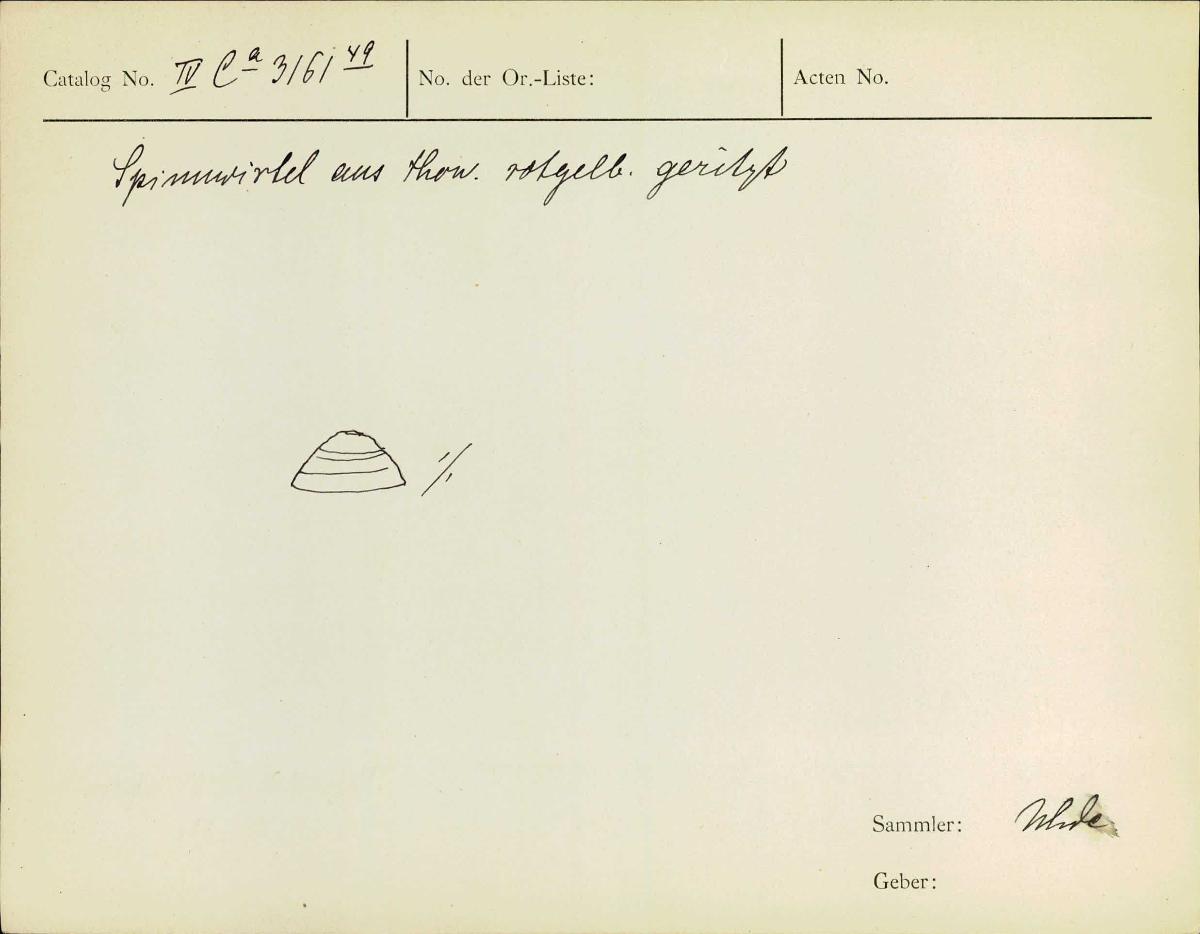 Catalog No. IV Ca 3161 49 No. der Or.-Liste: Acten No.
Spinnwirtel aus Thon. rotgelb. geritzt
1/1
Sammler: Uhde
Geber: